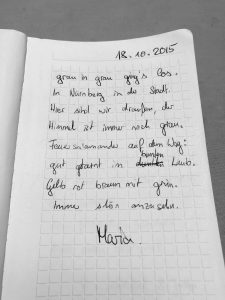 18.10.2015
grau in grau ging's los.
In Nürnberg in der Stadt.
Hier sind wir draußen, der
Himmel ist immer noch grau.
Feuersalamander auf dem Weg:
bunten
gut getarnt in Laub.
Gelb rot braun mit grün.
Immer schön anzusehn.